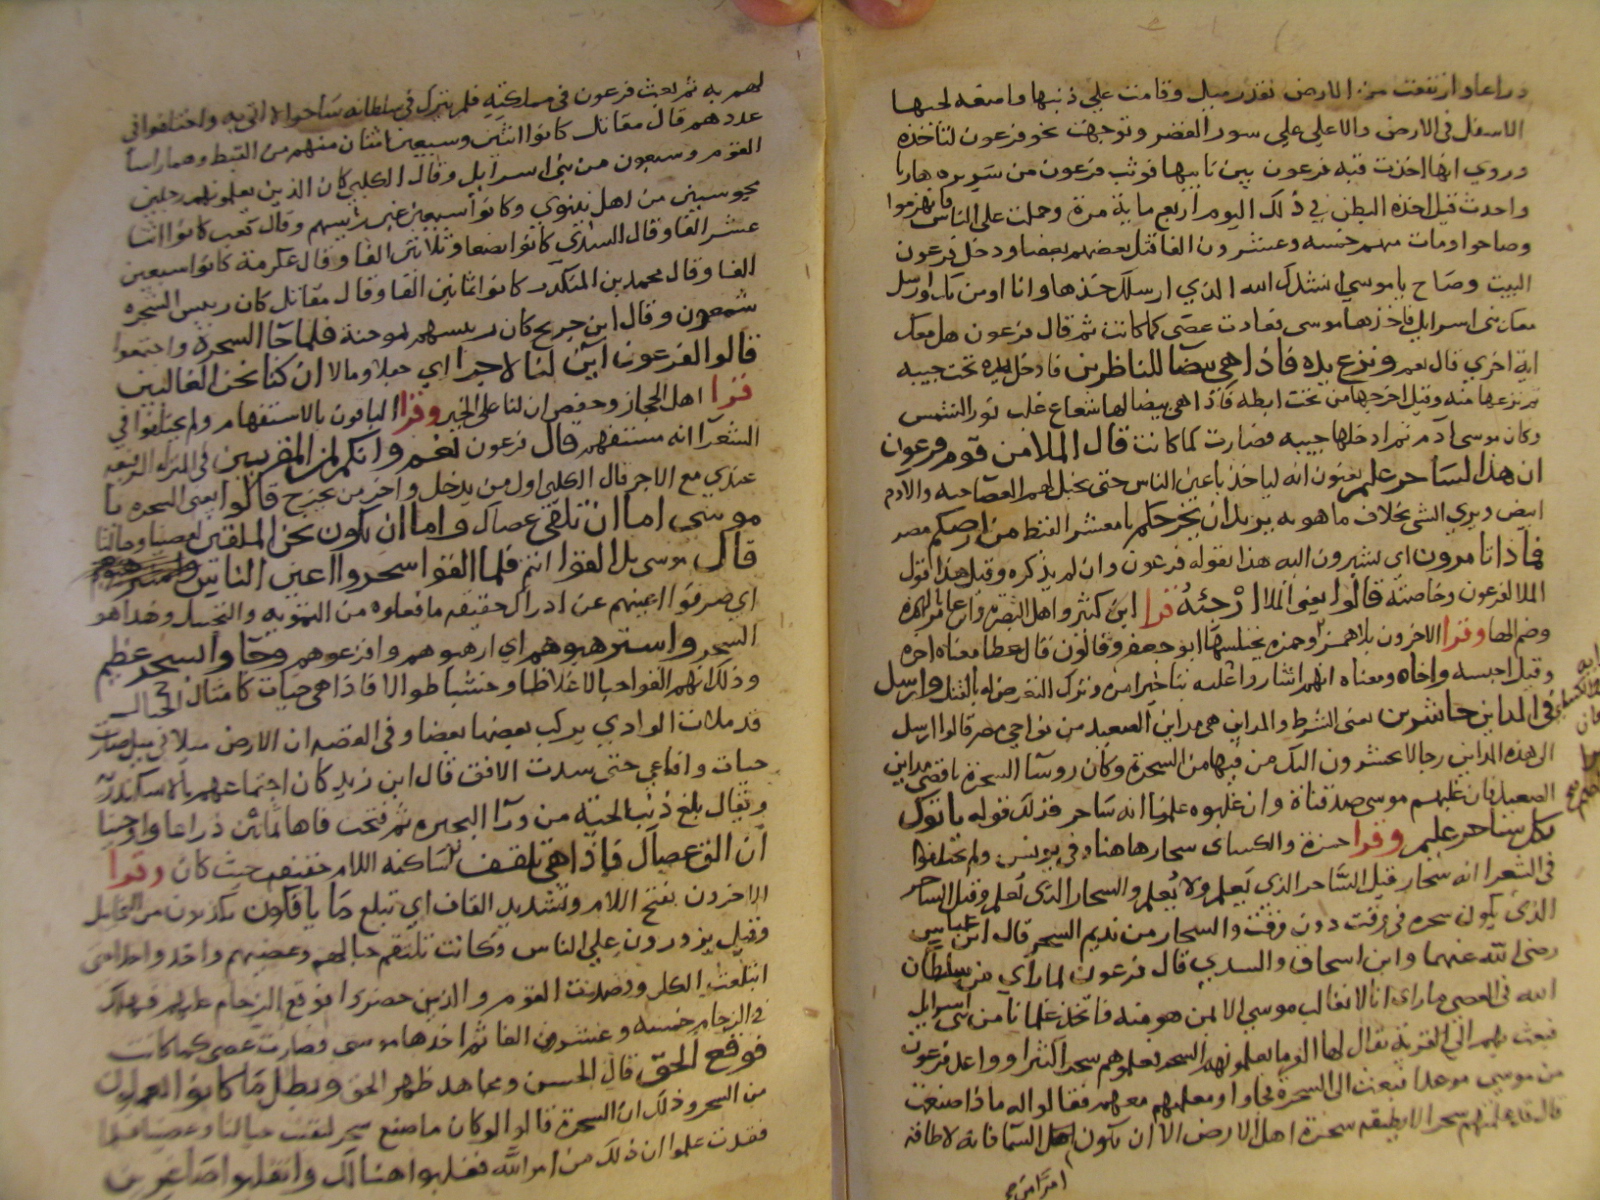 ذراعا وارتفعت من الارض بقدر ميل وقامت على ذنبها واضعة لحيها
الاسفل في الارض والاعلى على سور القصر وتوجهت نحو فرعون لتاخذه
وروي انها اخذت قبة فرعون بين نابيها فوثب فرعون من سريره هاربا
واحدث قيل اخذه البطن في ذلك اليوم اربع ماية مرة وحملت على الناس فانهزموا
وصاحوا ومات منهم خمسة وعشرون الفا قتل بعضهم بعضا ودخل فرعون
البيت وصاح يا موسى انشدك الله الذي ارسلك خذها وانا اومن بك وارسل
معك بني اسرايل فاخذها موسى فعادت عصى كما كانت ثم قال فرعون هل معك
اية اخري قال نعم ونزع يده فاذا هي بيضا للناظرين فادخل يده تحت جيبه
ثم نزعها منه وقيل اخرجها من تحت ابطه فاذا هي بيضا لها شعاع غلب نور الشمس
وكان موسى آدم ثم ادخلها جيبه فصارت كما كانت قال الملا من قوم فرعون
ان هذا لساحر عليم يعنون انه لياخذ باعين الناس حتى يخيل لهم العصا حية والآدم
ابيض ويري الشي بخلاف ما هو به يريد ان يخرجكم يا معشر القبط من ارضكم مصر
فماذا تامرون اي تشيرون اليه هذا يقوله فرعون وان لم يذكره وقيل هذا قول
الملا لفرعون وخاصته قالوا يعني الملا ارجئه قرا ابن كثير واهل البصرة وابن عامر بالهمزة
وضم الها وقرا الاخرون بلا همز وحمزه يختلسها ابو جعفر وقالون قال عطا معناه اخره
وقيل احبسه واخاه ومعناه انهم اشاروا عليه بتاخير امره وترك التعرض له بالقتل وارسل
في المداين حاشرين يعني الشرط والمداين هي مداين الصعيد من نواحي مصر قالوا ارسل
الى هذه المداين رجالا يحشرون اليك من فيها من السحرة وكان روسآ السحرة باقصى مداين
الصعيد فان غلبهم موسى صدقناه وان غلبوه علمنا انه ساحر فذلك قوله ياتوك
بكل ساحر عليم وقرا حمزة والكساى سحار هاهنا وفي يونس ولم يختلفوا
في الشعرا انه سحار قيل الساحر الذي يَعلم ولا يُعلم والسحار الذي يُعلم وقيل الساحر
الذي يكون سحره في وقت دون وقت والسحار من يديم السحر قال ابن عباس
رضى الله عنهما وابن اسحاق والسدي قال فرعون لما رأي من سلطان
الله في العصي ما راى انا لا نغالب موسي الا بمن هو منه فاتخذ غلمانا من بني اسرايل
فبعث بهم الى القرية يقال لها الفرما يعلمونهم السحر فعلموهم سحرا كثيرا وواعد فرعون
من موسي موعدا فبعث الى السحرة فجاوا ومعلمهم معهم فقالوا له ماذا صنعت
قال قد علمتهم سحرا لا يطيقه سحرة اهل الارض الا ان يكون اهل السما فانه لا طاقة
لهم به ثم بعث فرعون في مملكته فلم يترك في سلطانه ساحرا الا اتى به واختلفوا في
عددهم قال مقاتل كانوا اثنين وسبعين اثنان منهم من القبط وهما راسا
القوم وسبعون من بني اسرايل وقال الكلبي كان الذين يعلمونهم رجلين
مجوسيين من اهل نينوي وكانوا سبعين غير رييسهم وقال كعب كانوا اثنا
عشر الفا وقال السدي كانوا بضعا وثلاثين الفا وقال عكرمة كانوا سبعين
الفا وقال محمد بن المنكدر كانوا ثمانين الفا وقال مقاتل كان رييس السحره
شمعون وقال ابن جريج كان رييسهم يوحنة فلما جآ السحرة واجتمعوا
قالوا لفرعون اين لنا لاجرا اي جعلا ومالا ان كنا نحن الغالبين
قرا اهل الحجاز وحفص ان لنا على الخبر وقرا الباقون بالاستفهام ولم يختلفوا في
الشعرآ انه مستفهم قال فرعون نعم وانكم لمن المقربين في المنزلة الرفيعة
عندي مع الاجر قال الكلبي اول من يدخل واخر من يخرج قالوا يعني السحره يا
موسى اما ان تلقي عصاك واما ان نكون نحن الملقين لعصينا وحبالنا
قال موسى بل القوا انتم فلما القوا سحروا اعين الناس واسترهبوهم
اي صرفوا اعينهم عن ادراك حقيقه ما فعلوه من التمويه والتخييل وهذا هو
السحر واسترهبوهم اي ارهبوهم وافزعوهم وجآوا بسحر عظيم
وذلك انهم القوا حبالا غلاظا وخشبا طوالا فاذا هي حيات كامثال الجبال
قد ملات الوادي يركب بعضها بعضا وفي القصه ان الارض ميلا في ميل صارت
حيات وافاعي حتى سدت الافق قال ابن زيد كان اجتماعهم بالاسكندرية
ويقال بلغ ذنب الحية من ورآ البحيره ثم فتحت فاها ثمانين ذراعا واوحينا
ان الق عصاك فاذا هي تلقف ساكنة اللام خفيفه حيث كان وقرا
الاخرون بفتح اللام وتشديد القاف اي تبتلع ما يافكون يكذبون من التخاييل
وقيل يزورون علي الناس وكانت تلتقم حبالهم وعصيهم واحد واحد حتى
ابتلعت الكل وقصدت القوم والذين حضروا فوقع الزحام عليهم فهلك
في الزحام خمسه وعشرون الفا ثم اخذها موسى فصارت عصى كما كانت
فوقع الحق قال الحسن ومجاهد ظهر الحق وبطل ما كانوا يعملون
من السحر وذلك ان السحرة قالوا لو كان ما صنع سحر لبقت حبالنا وعصينا فلما
فقدت علموا ان ذلك من امر الله فغلبوا هنالك وانقلبوا صاغرين